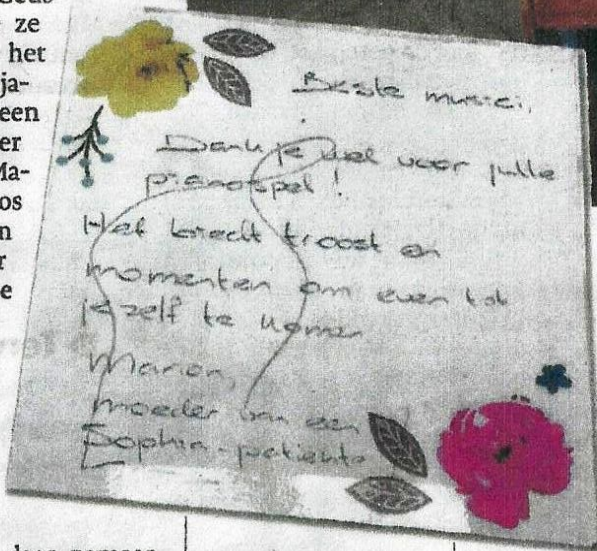 ze
het
ja-
een
er
Ma-
os
n
r
e
Beste musici,
Dank je wel voor jullie
pianospel!
Het biedt troost en
momenten om even tot
jezelf te komen
Marion,
moeder van een
Sophia-patiënte